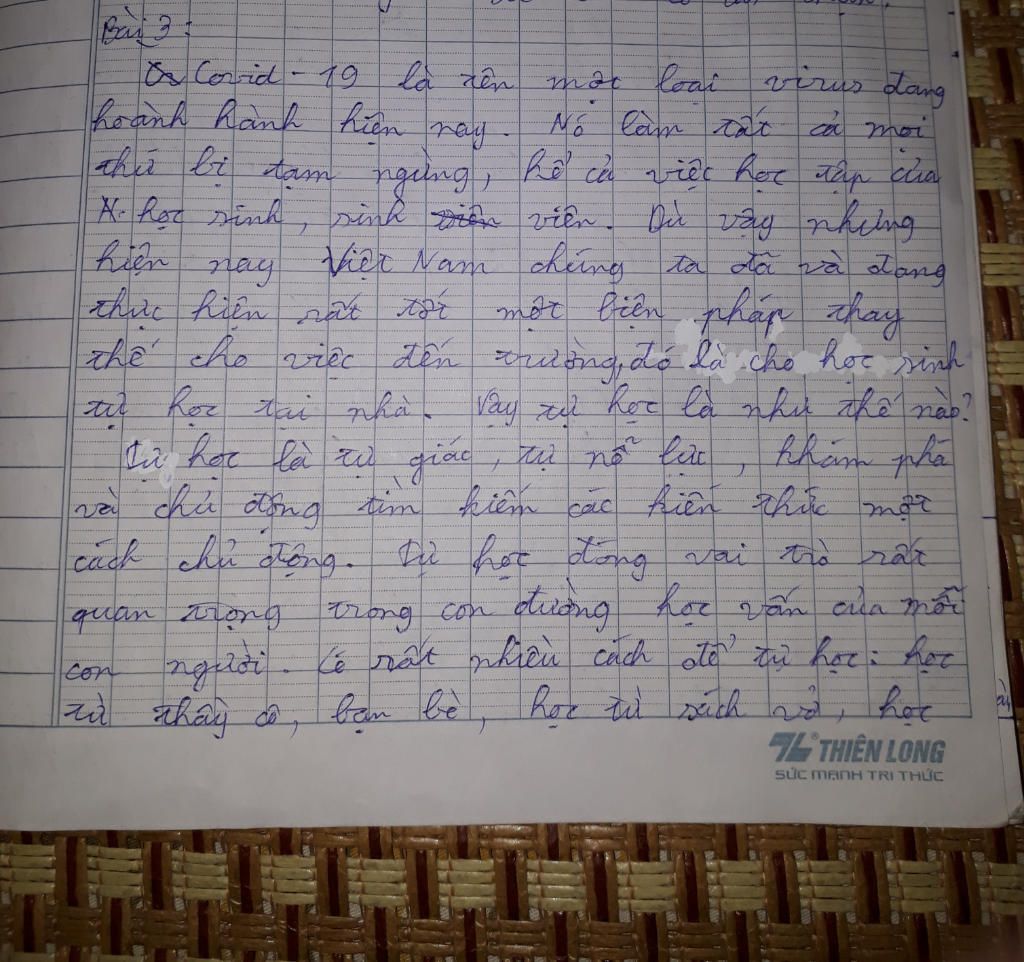 Bài 3:
Covid - 19 là tên một loại virus đang
hoành hành hiện nay. Nó làm tất cả mọi
thứ bị tạm ngừng, kể cả việc học tập của
học sinh, sinh viên. Dù vậy nhưng
hiện nay Việt Nam chúng ta đã và đang
thực hiện rất tốt một biện pháp thay
thế cho việc đến trường, đó là cho học sinh
tự học tại nhà. Vậy tự học là như thế nào?
Tự học là tự giác, tự nỗ lực, khám phá
và chủ động tìm kiếm các kiến thức một
cách chủ động. Tự học đóng vai trò rất
quan trọng trong con đường học vấn của mỗi
con người. Có rất nhiều cách để tự học: học
từ thầy cô, bạn bè, học từ sách vở, học
THIÊN LONG
SỨC MẠNH TRI THỨC